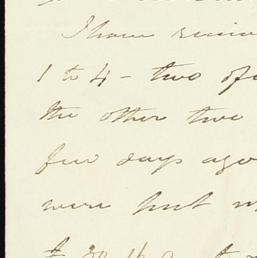 I have
1 to 4 - two of
the other two
few days ago
were but